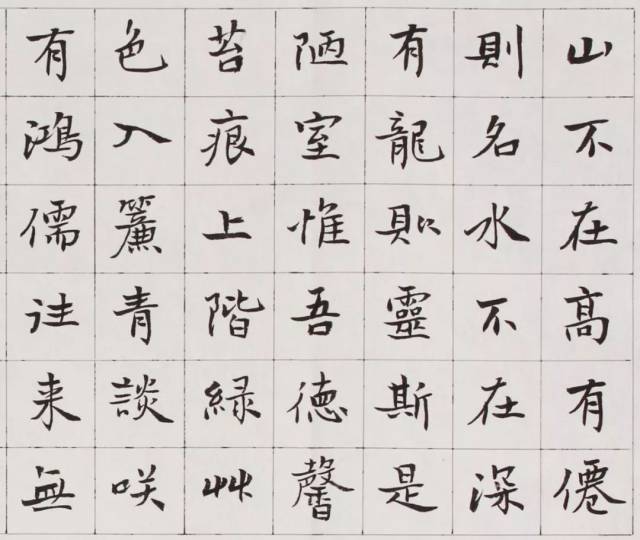 山不在高有僊
則名水不在深
有龍則靈斯是
陋室惟吾德馨
苔痕上階緑艸
色入簾青談咲
有鴻儒往来無